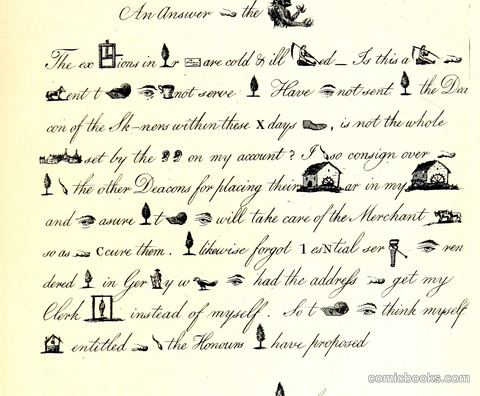 An Answer the
The ex ions in r are cold & ill ed – Is this a
ent t not serve Have not sent the Dea
con of the Sk-ners within these X days , is not the whole
set by the on my account? I so consign over
the other Deacons for placing their ar in my
and asure t will take care of the Merchant
so as Ccure them. likewise forgot 1 esNtial ser ren
dered in Ger y w had the addrefs get my
Clerk instead of myself. So t think myself
entitled the Honours have proposed
comicbooks.com